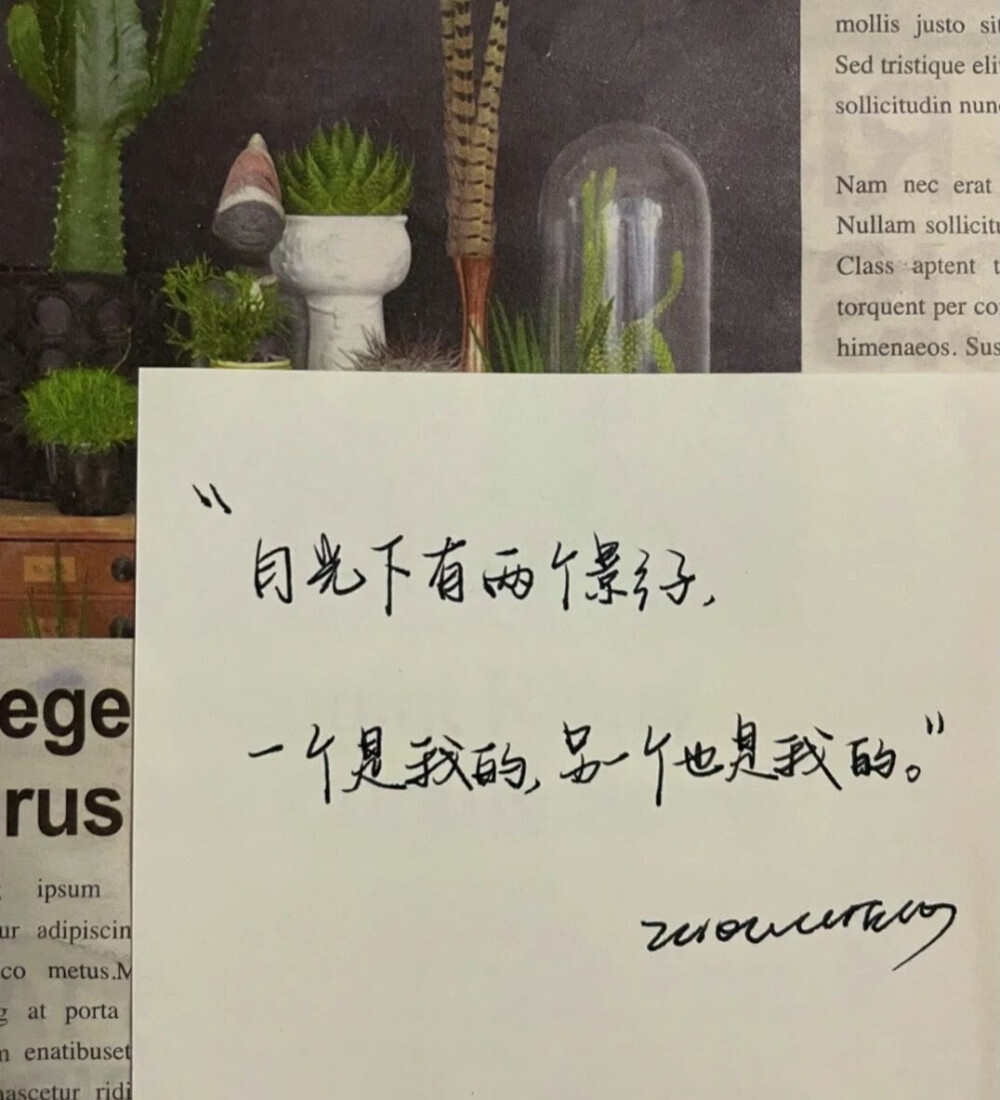 mollis justo sit
Sed tristique eli
sollicitudin nun
Nam nec erat
Nullam sollicitu
Class aptent t
torquent per co
himenaeos. Sus
“月光下有两个影子,
一个是我的,另一个也是我的。”
ege
rus
ipsum
ur adipiscin
co metus.M
g at porta
n enatibuset
nascetur ridi